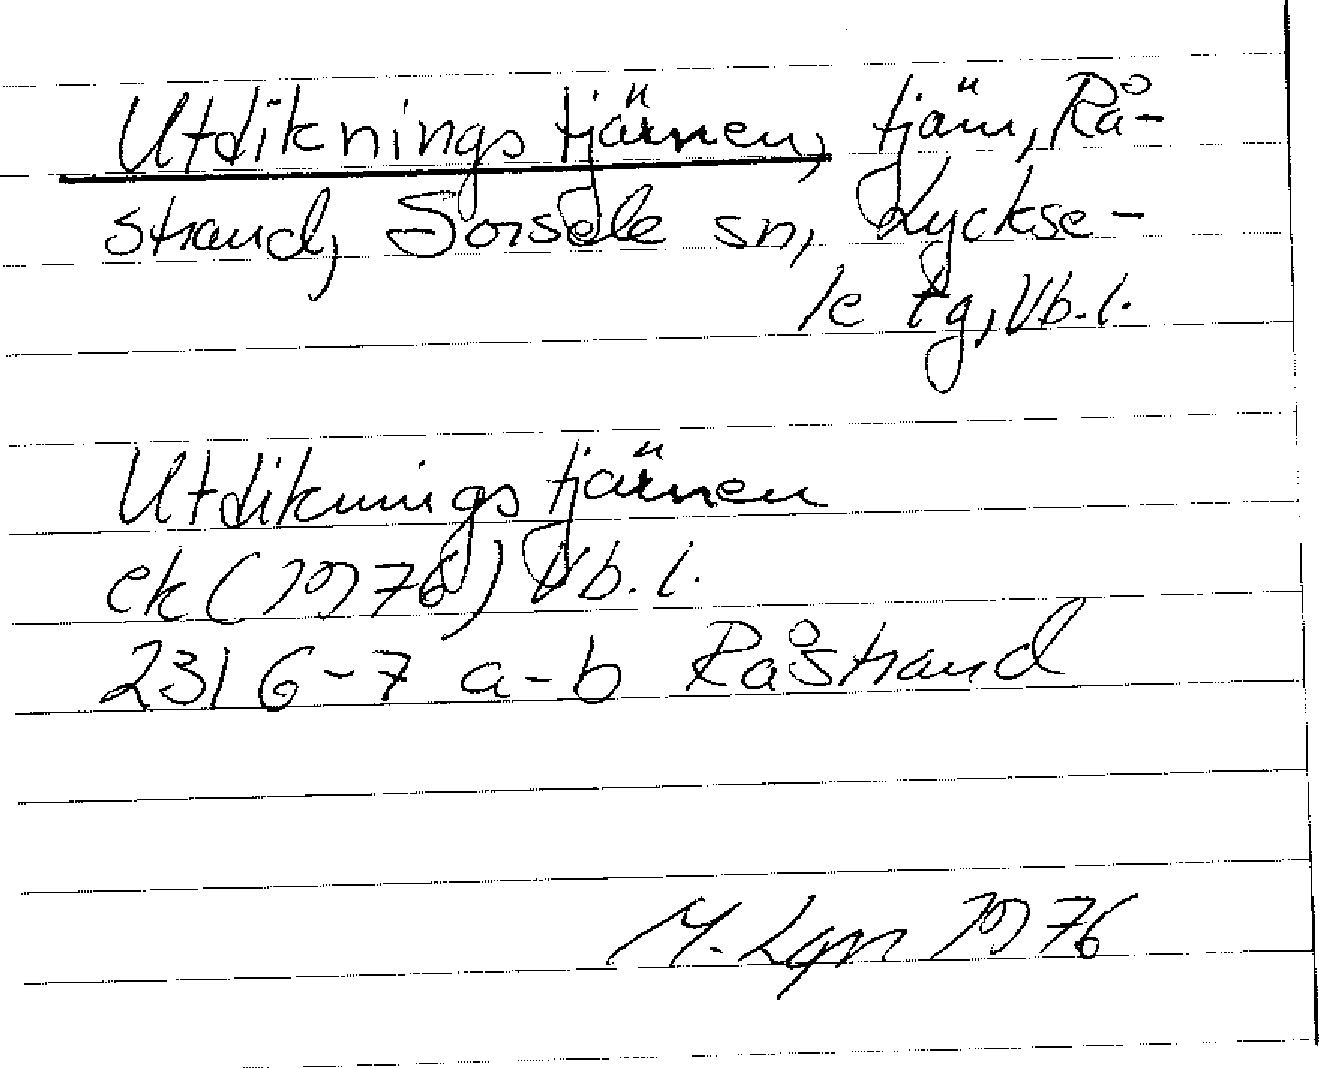 Utdikningstjärnen, tjärn, Rå-
strand, Sorsele sn, Lyckse-
le tg, Vb.l.
Utdikningstjärnen
ek (1976) Vb.l.
231 6-7 a-b Råstrand
M. Lgn 1976